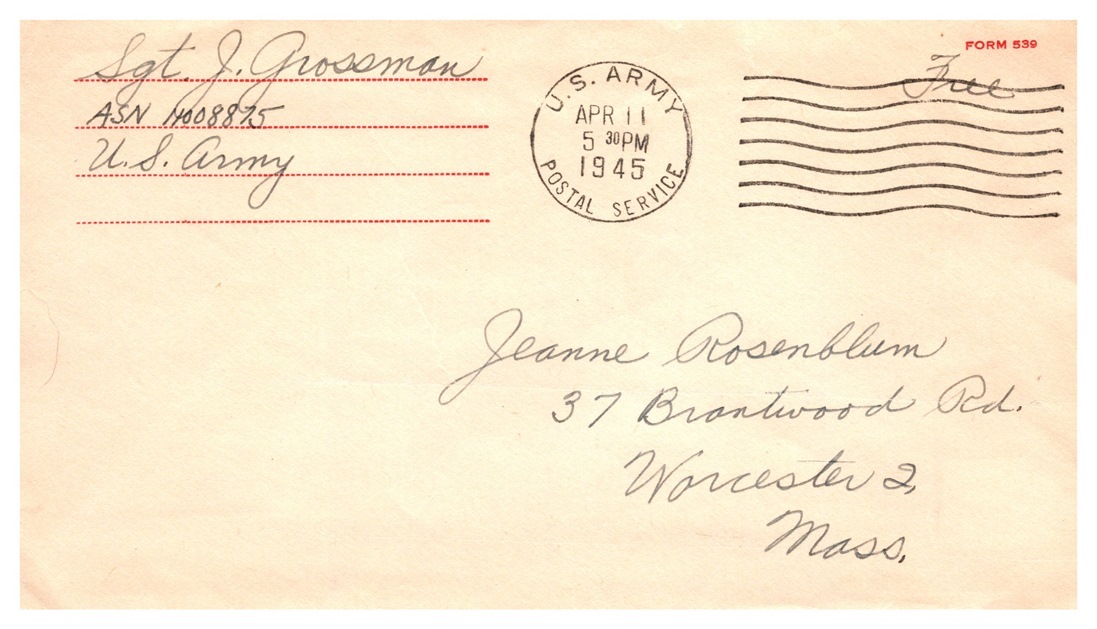 Sgt. J. Grossman
ASN 11008875
U.S. Army
U.S. ARMY
APR 11
5 30PM
1945
POSTAL SERVICE
FORM 539
Free
Jeanne Rosenblum
37 Brantwood Rd.
Worcester 2,
Mass.